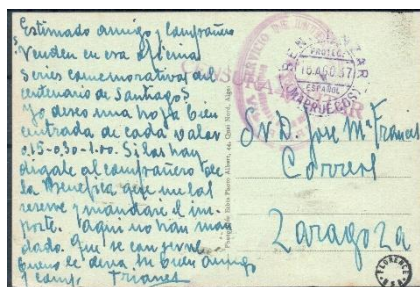 Estimado amigo y compañero
Venden en esa oficina
series comemorativas del
centenario de Santiago?
Yo deseo una hoja bien
centrada de cada valor
0,15-0,30-1,00. Si las hay
dígale al compañero de
la Benefica que me las
reserve y mandaré el im-
porte. Aquí no han man
dado. Que se conserve
bueno le desea su buen amigo
y comp. Frianes
CENSURA MILITAR
SERVICIO DE
PROTEC.
16 AGO 37
ESPAÑOL
(MARRUECOS)
Sr D. Jose Mª Frances
Correos
Zaragoza
FLORENCE